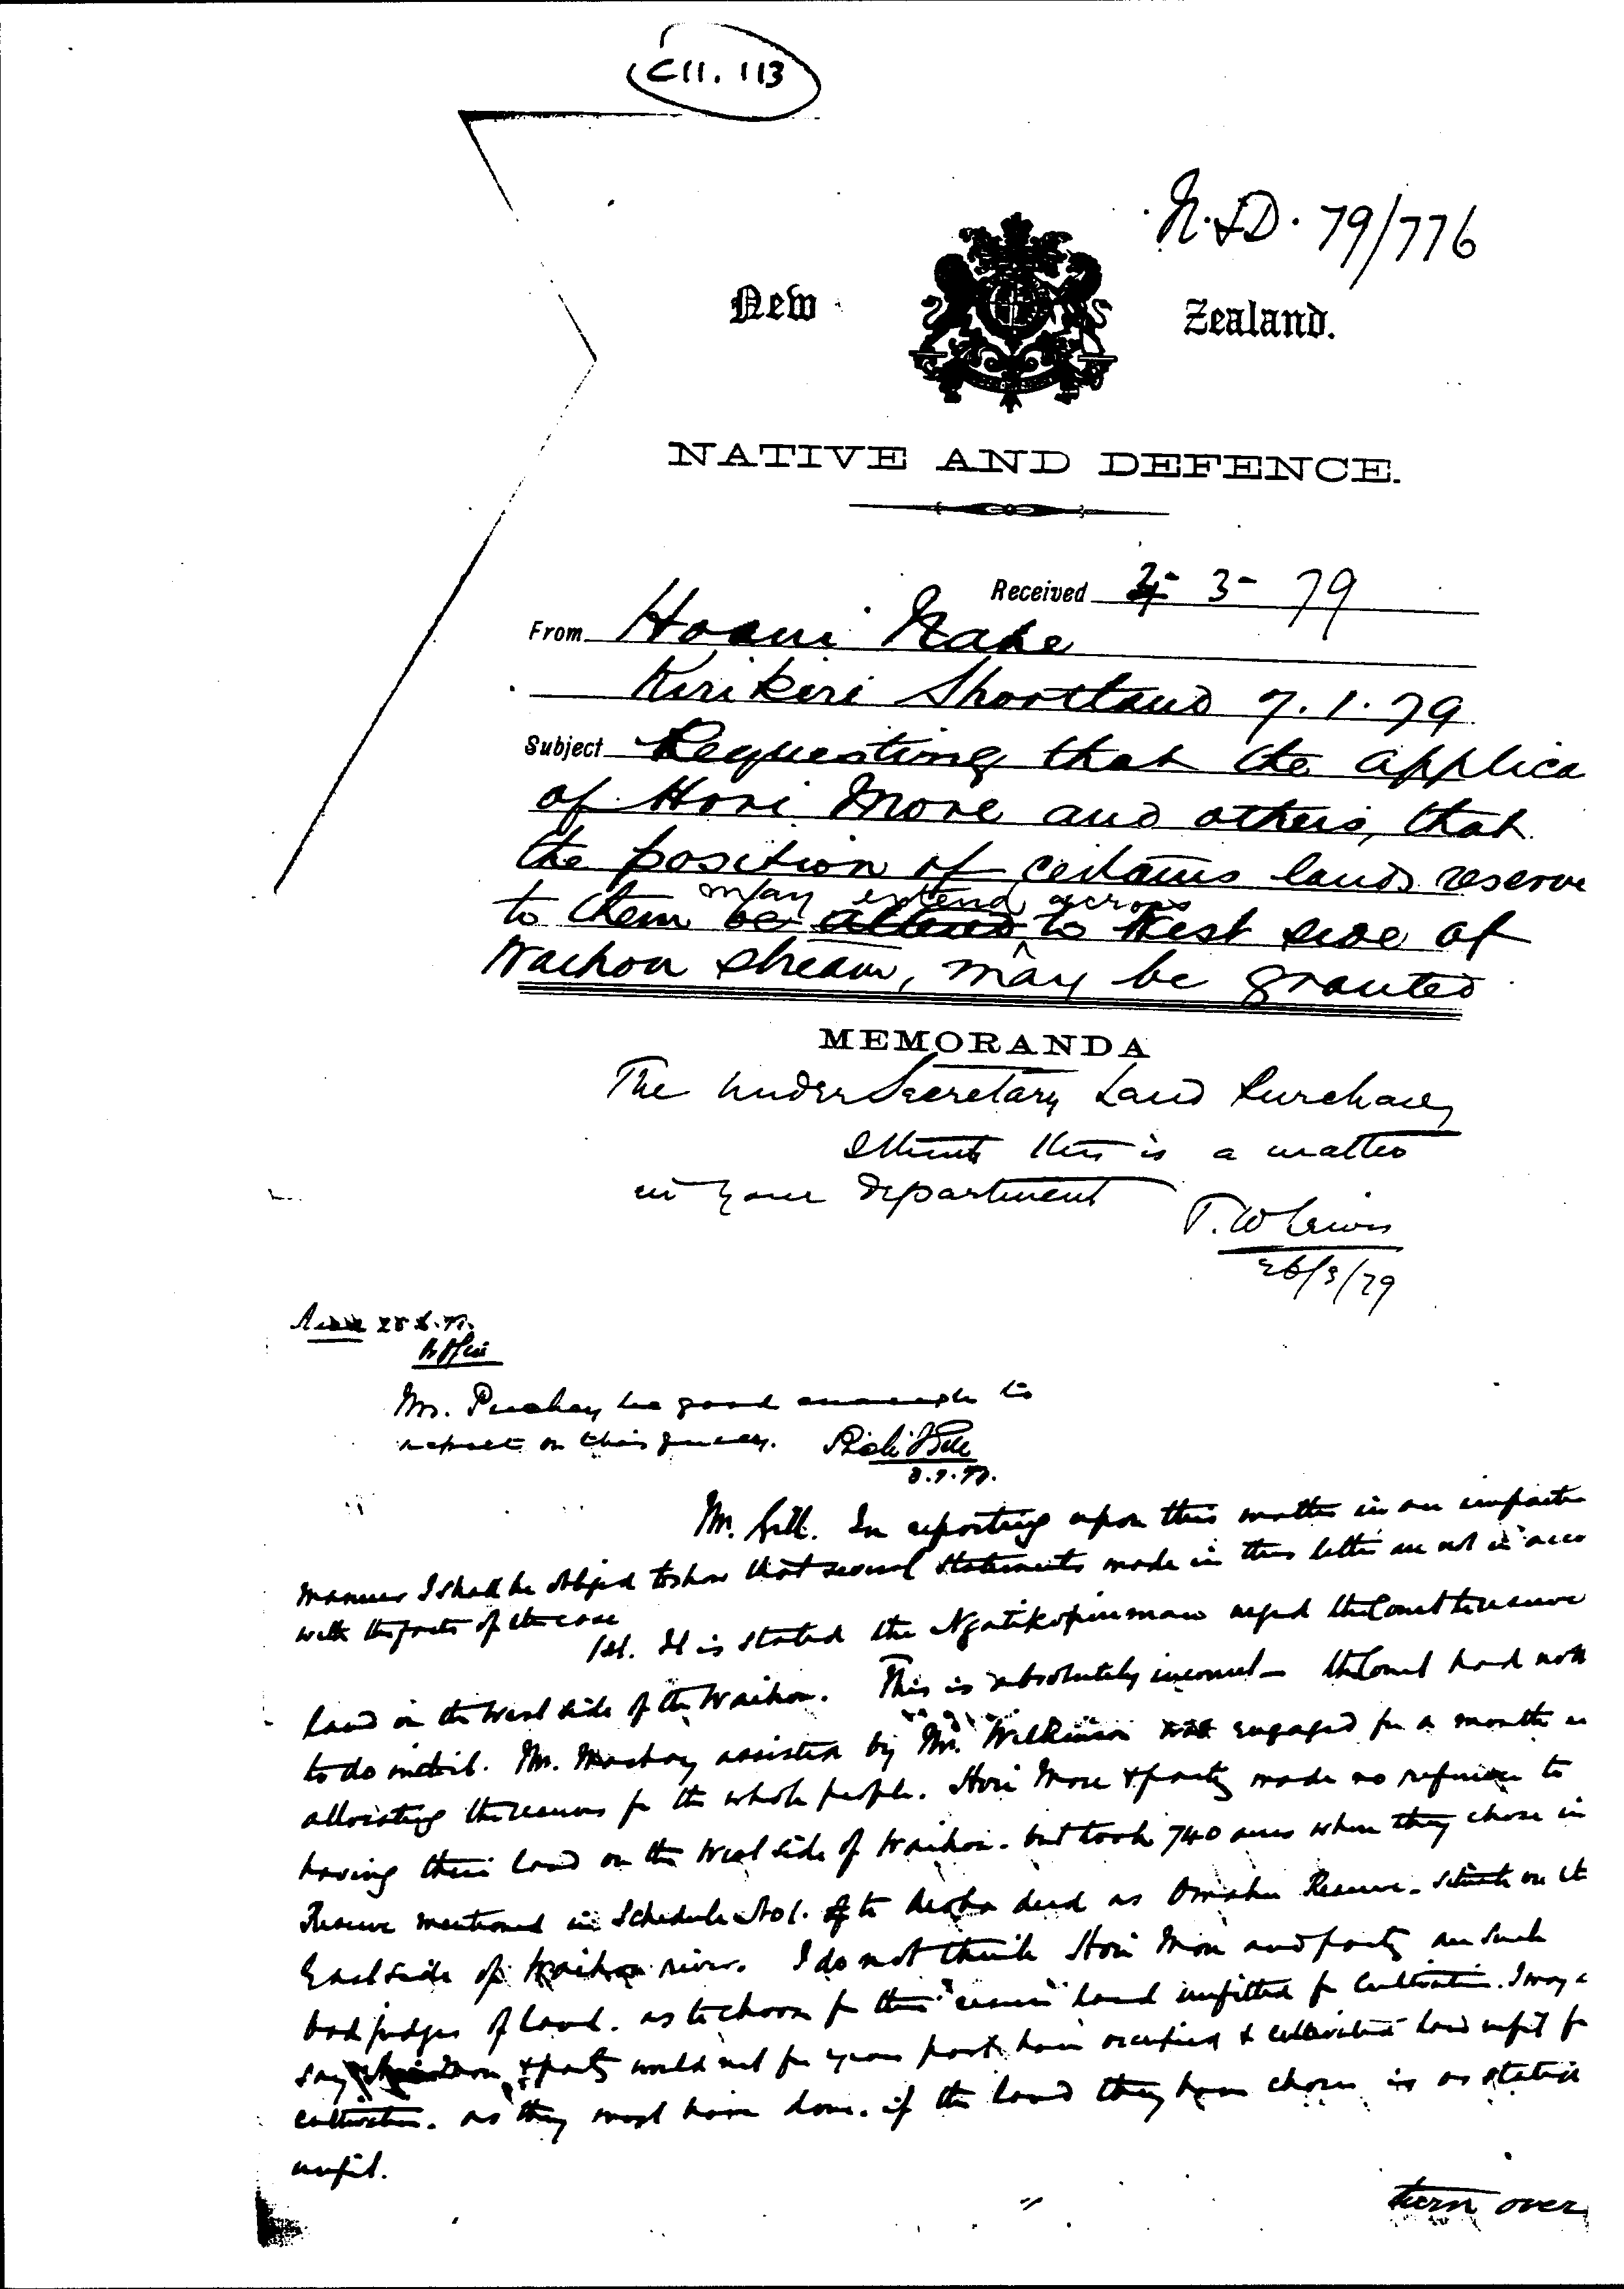 C11. 113
N.L.D. 79/776
New Zealand.
NATIVE AND DEFENCE.
Received 3- 79
From Hoani Nahe
Kirikiri Shortland 7.1.79
Subject Requesting that the applica
of Hori More and others, that
the position of certain lands reserve
may extend across
to them be altered to West side of
Waihou stream, may be granted
MEMORANDA
The Under Secretary Land Purchases
I think this is a matter
in your department
T. W Lewis
26/3/79
Mr. Puckey be good enough to
report on this
Mr. Gill. In reporting upon this matter in an impartia
manner I shall be obliged to show that several statements made in this letter are not in acco
with the facts of the case
1st. It is stated the Ngatikopirimau urged the Court to reserve
land on the West side of the Waihou. This is absolutely incorrect - the Court had noth
to do with it. Mr. Mackay assisted by Mr. Wilkinson was engaged for a month
allocating the reserves for the whole people. Hori More & party made no reference to
having their land on the West side of Waihou. but took 740 acres where they chose in
Reserve mentioned in Schedule No 1. of te Aroha deed as Omahu Reserve. situate on th
East side of Waihou river. I do not think Hori More and party are such
bad judges of land. as to choose for their "reserve" land unfitted for Cultivation. I may
say & party would not for years past have occupied & cultivated land unfit for
cultivation. as they must have done. if the land they have chosen is as stated
unfit.
turn over